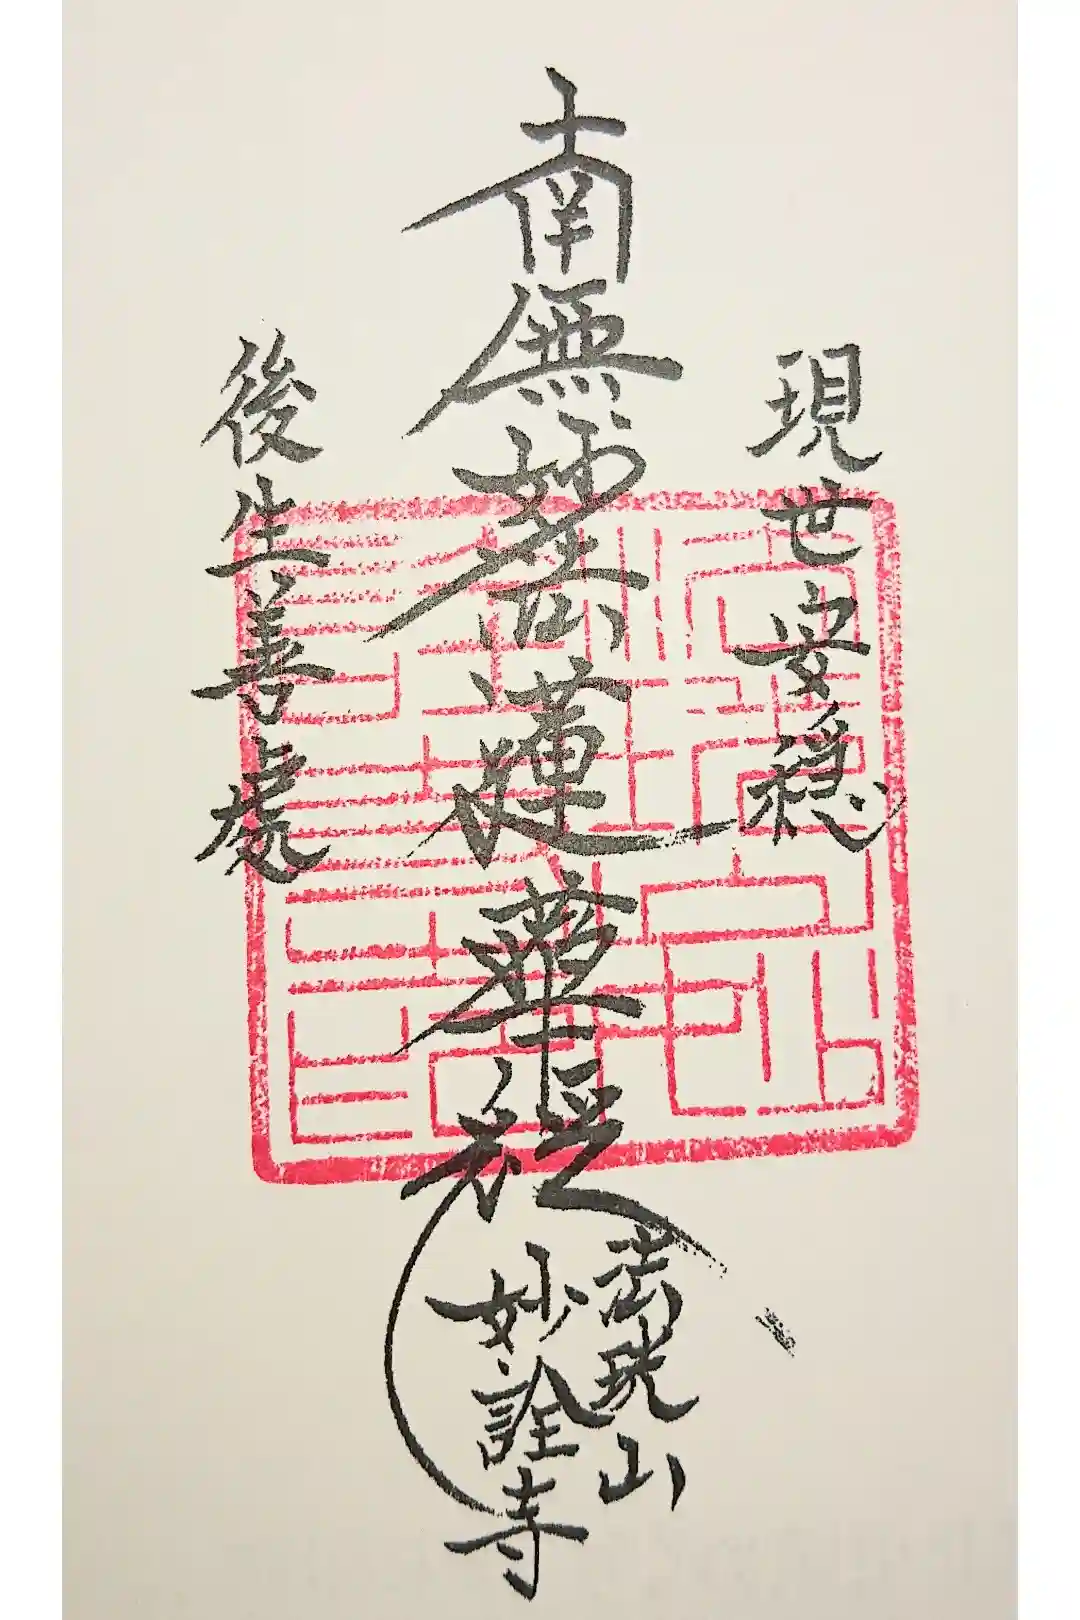 現世安穏
南無妙法蓮華経
後生善處
山
妙詮寺